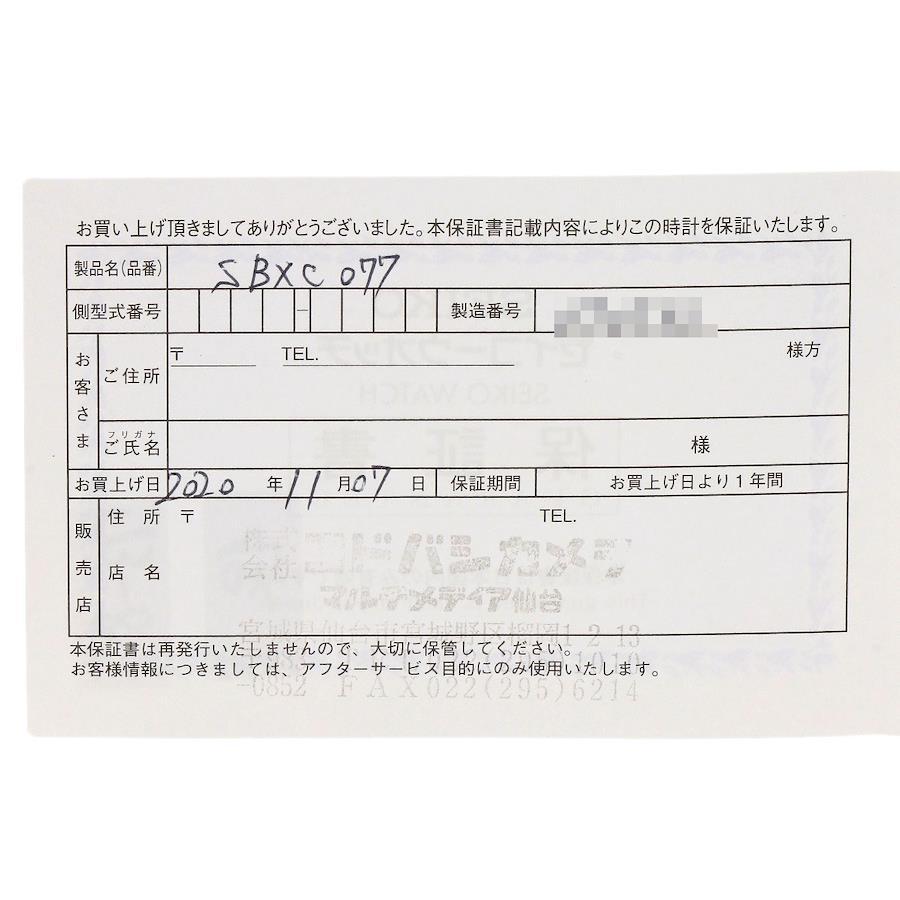 お買い上げ頂きましてありがとうございました。本保証書記載内容によりこの時計を保証いたします。
製品名(品番) SBXC077
側型式番号 － 製造番号
お客さま
ご住所 〒 TEL. 様方
フリガナ
ご氏名 様
お買上げ日 2020 年 11 月 07 日 保証期間 お買上げ日より1年間
販売店
住所 〒 TEL.
店名
株式会社 ヨドバシカメラ
マルチメディア仙台
宮城県仙台市宮城野区榴岡1-2-13
本保証書は再発行いたしませんので、大切に保管してください。
お客様情報につきましては、アフターサービス目的にのみ使用いたします。
-0852 FAX022(295)6214
SEIKO
セイコーウオッチ
SEIKO WATCH
保証書